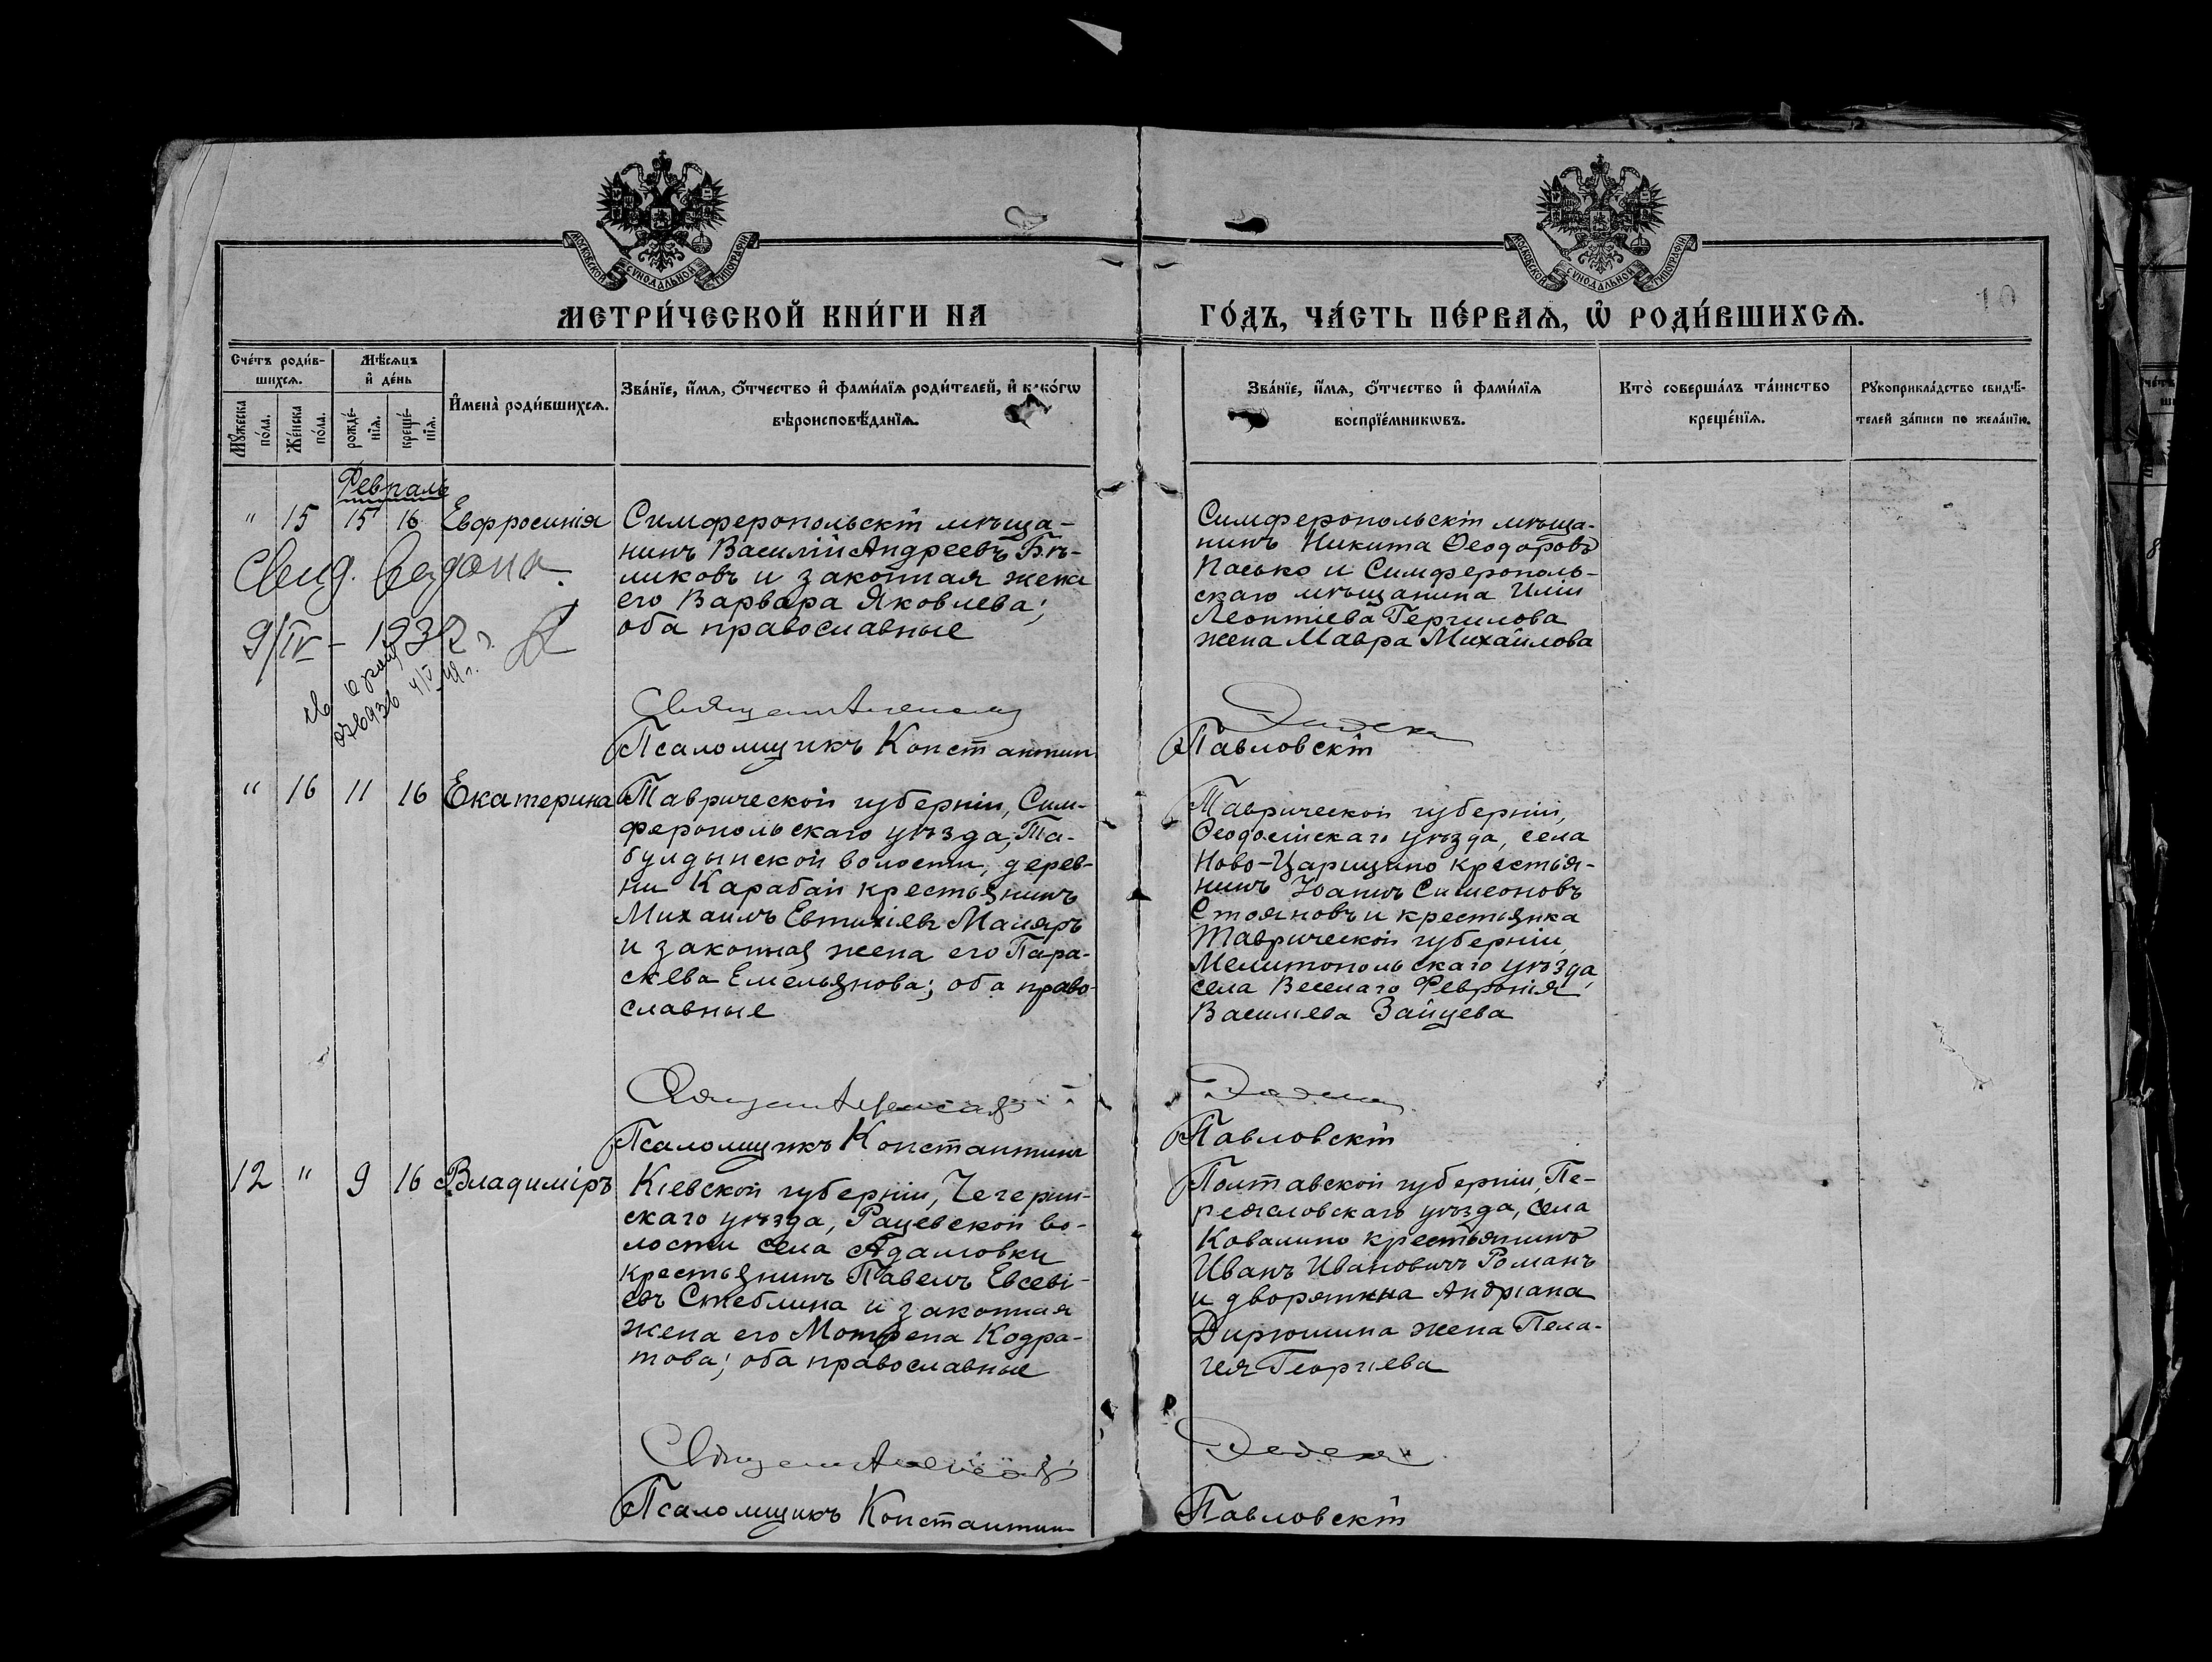 МОСКОВСКОЙ СѴНОДАЛЬНОЙ ТИПОГРАФІИ
МОСКОВСКОЙ СѴНОДАЛЬНОЙ ТИПОГРАФІИ
МЕТРИ́ЧЕСКОЙ КНИ́ГИ НА
ГО́ДЪ, ЧА́СТЬ ПЕ́РВАѦ, Ѡ҆ РОДИ́ВШИХСѦ.
10
Сче́тъ роди́в-
шихсѧ.
Мѣ́сѧцъ
и҆ де́нь
Мꙋ́жеска
по́ла.
Же́нска
по́ла.
рожде́-
нїѧ.
креще́-
нїѧ.
И҆мена̀ роди́вшихсѧ.
Зва́нїе, и҆́мѧ, ѻ҆́тчество и҆ фами́лїѧ роди́телей, и҆ како́гѡ
вѣроисповѣ́данїѧ.
Зва́нїе, и҆́мѧ, ѻ҆́тчество и҆ фами́лїѧ
воспрїе́мникѡвъ.
Кто̀ соверша́лъ та́инство
креще́нїѧ.
Рꙋкоприкла́дство свидѣ́-
телей за́писи по жела́нїю.
Февраль
" 15 15 16 Евфросинія
Симферопольскій мѣща-
нинъ Василій Андреевъ Бѣ-
ликовъ и законная жена
его Варвара Яковлева;
оба православные
Симферопольскій мѣща-
нинъ Никита Ѳеодоровъ
Пасько и Симферополь-
скаго мѣщанина Иліи
Леонтіева Гергилова
жена Мавра Михайлова
Свид. выдано
9/IV - 1932 г.
Псаломщикъ Константин
Павловскій
" 16 11 16 Екатерина
Таврической губерніи, Сим-
феропольскаго уѣзда, Та-
булдынской волости, дерев-
ни Карабай крестьянинъ
Михаилъ Евтихіевъ Маляръ
и законная жена его Пара-
скева Емельянова; оба право-
славные
Таврической губерніи,
Ѳеодосійскаго уѣзда, села
Ново-Царицыно крестья-
нинъ Іоаннъ Симеоновъ
Стояновъ и крестьянка
Таврической губерніи,
Мелитопольскаго уѣзда,
села Веселаго Феvронія
Василіева Зайцева
Псаломщикъ Константинъ
Павловскій
12 " 9 16 Владиміръ
Кіевской губерніи, Чегерин-
скаго уѣзда, Рацевской во-
лости села Адамовки
крестьянинъ Павелъ Евсеві-
евъ Стеблина и законная
жена его Мотрена Кодра-
това; оба православные
Полтавской губерніи, Пе-
реясловскаго уѣзда, села
Ковалино крестьянинъ
Иванъ Ивановичъ Романъ
и дворянина Андріана
Дирюшина жена Пела-
гея Георгіева
Псаломщикъ Константин
Павловскій